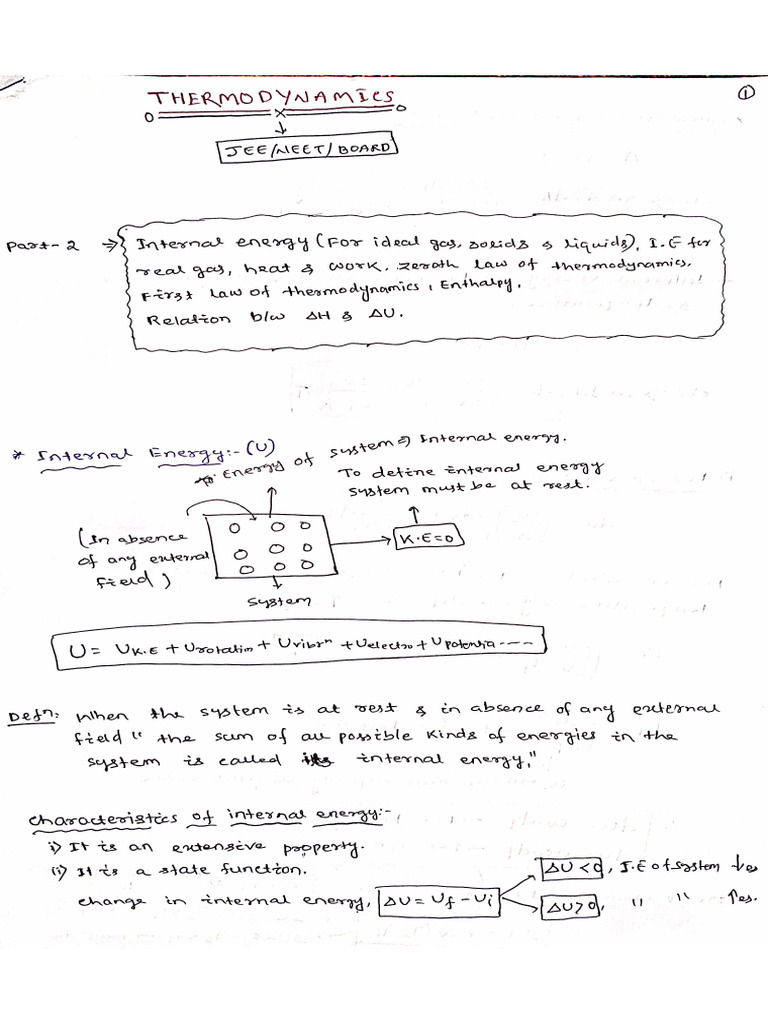 ①
THERMODYNAMICS
JEE/NEET/BOARD
Part-2 ⇒ Internal energy (For ideal gas, solids & liquids), I.E for
real gas, heat & work, zeroth law of thermodynamics,
First law of thermodynamics, Enthalpy,
Relation b/w ΔH & ΔU.
* Internal Energy:- (U)
Energy of system ⇒ Internal energy.
To define internal energy
system must be at rest.
(In absence
of any external
field)
K.E=0
system
U = U_K.E + U_rotation + U_vibrⁿ + U_electro + U_potentia ----
Defn: When the system is at rest & in absence of any external
field " the sum of all possible kinds of energies in the
system is called internal energy,"
characteristics of internal energy:-
i) It is an extensive property.
ii) It is a state function.
change in internal energy, ΔU = U_f - U_i
ΔU < 0, I.E of system ↓es
ΔU > 0, " " ↑es.